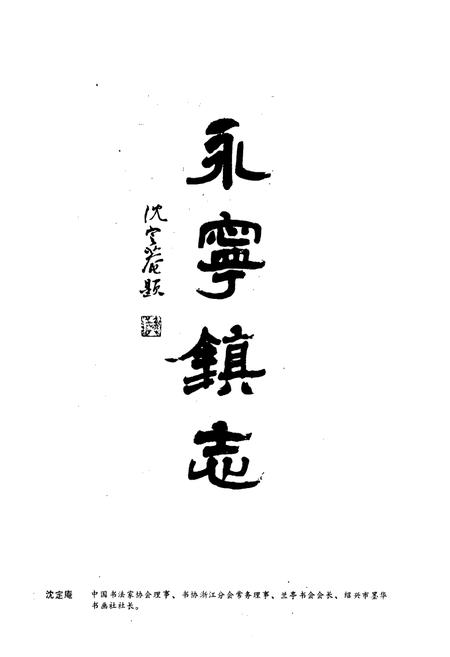 永寧鎮志
沈定庵題
沈定庵 中国书法家协会理事、书协浙江分会常务理事、兰亭书会会长、绍兴市墨华
书画社社长。